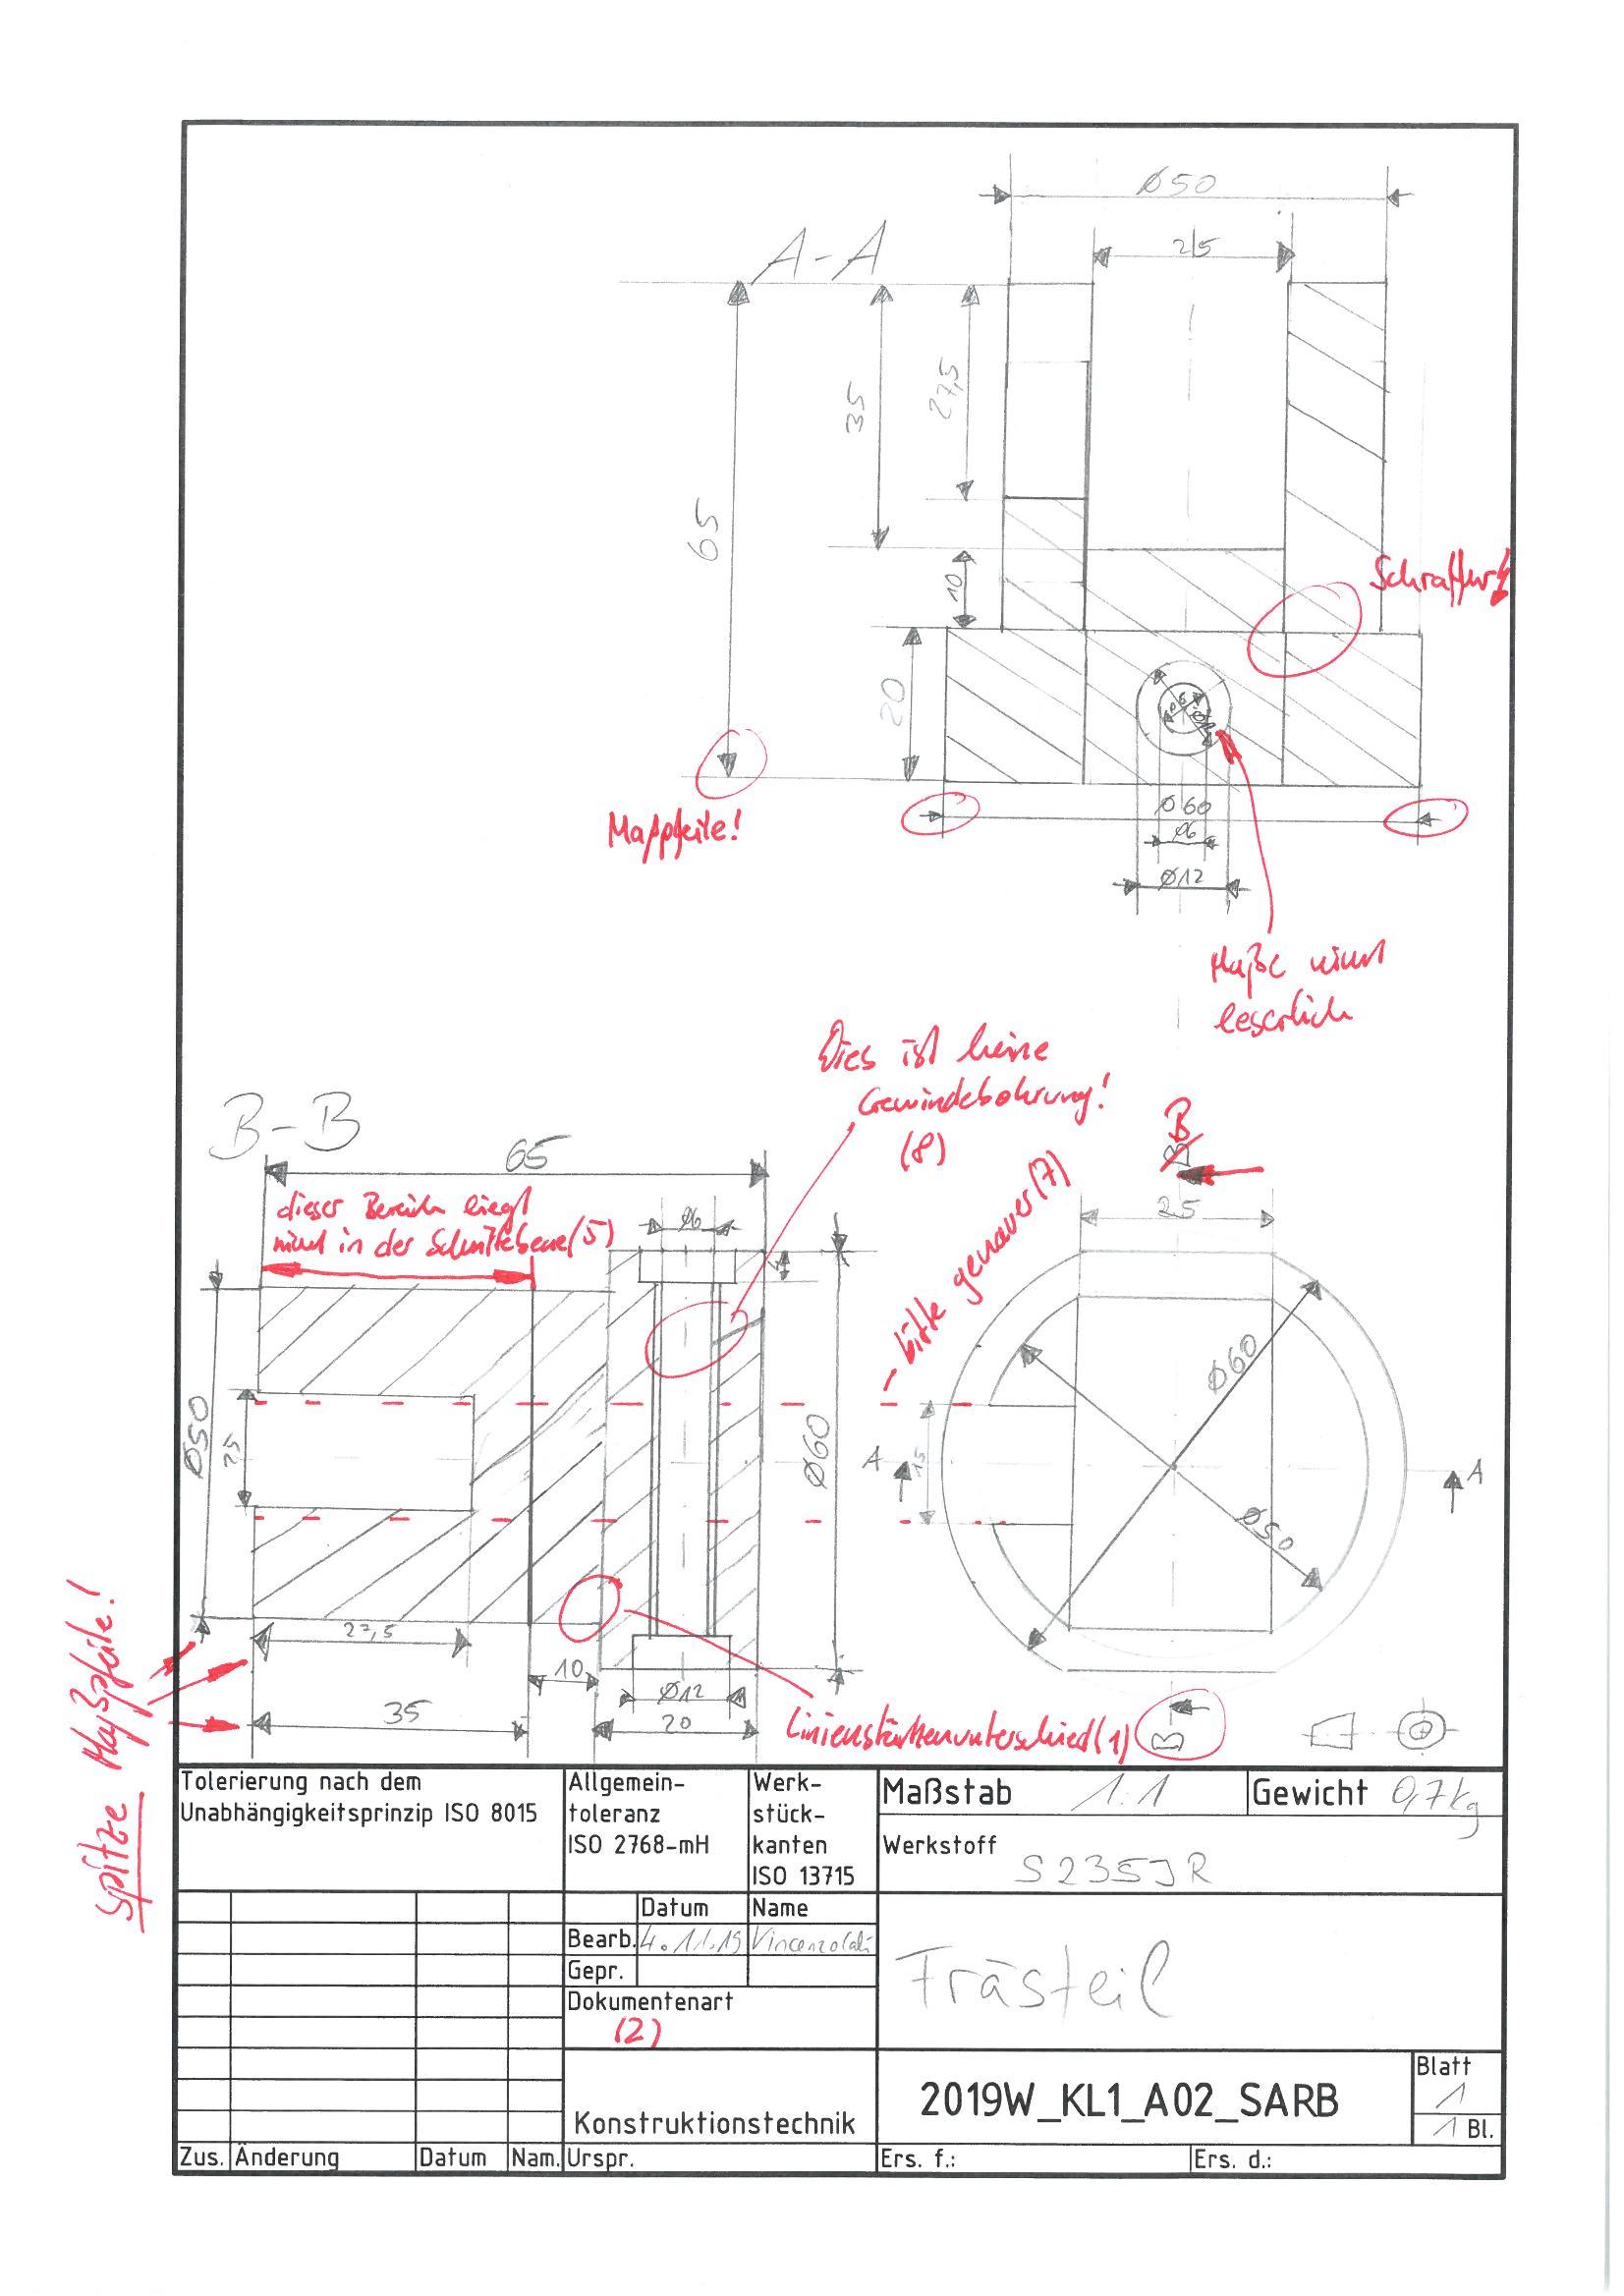 Ø50
A-A
25
35
27,5
65
10
Schraffur
20
Ø6
Ø60
Ø6
Ø12
Maßpfeile!
Maße nicht
leserlich
Dies ist keine
Gewindebohrung!
(8)
B-B
65
B
B
dieser Bereich liegt
nicht in der Schnittebene (5)
Ø6
4
bitte genauer (7)
25
Ø60
Ø50
25
Ø60
A
15
A
Ø50
27,5
10
Ø12
35
20
Linienstärkenunterschied (1)
B
spitze Maßpfeile!
Tolerierung nach dem
Unabhängigkeitsprinzip ISO 8015
Allgemein-
toleranz
ISO 2768-mH
Werk-
stück-
kanten
ISO 13715
Maßstab 1:1
Gewicht 0,7kg
Werkstoff S235JR
Datum Name
Bearb. 4.11.19
Gepr.
Dokumentenart
(2)
Frästeil
Konstruktionstechnik
2019W_KL1_A02_SARB
Blatt
1
1 Bl.
Zus. Änderung Datum Nam. Urspr. Ers. f.: Ers. d.: